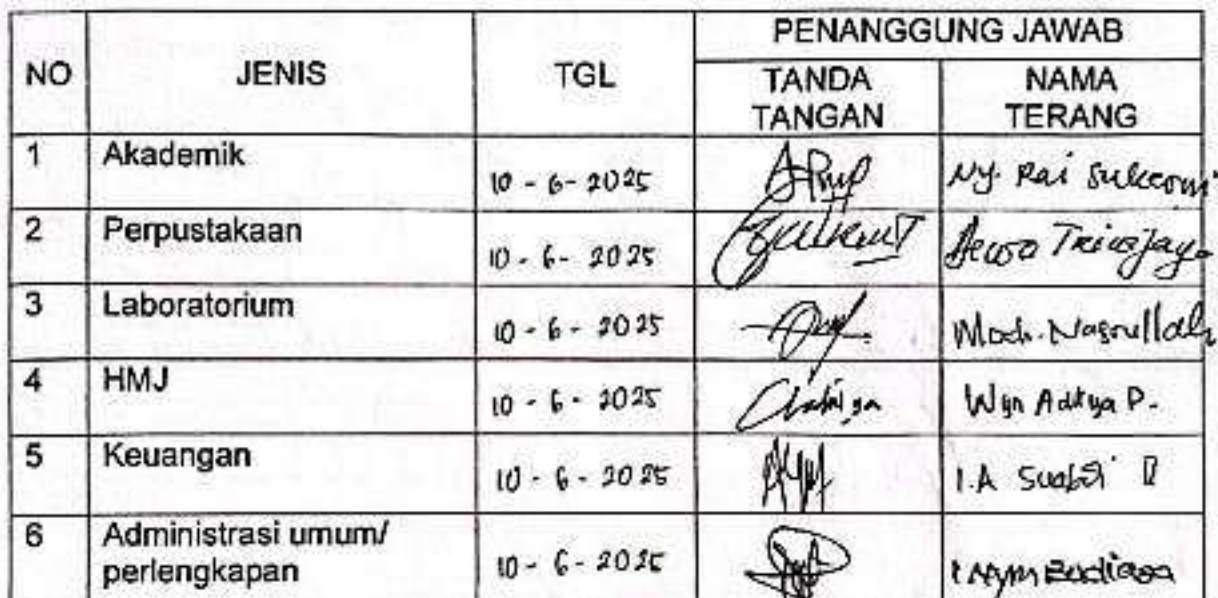 PENANGGUNG JAWAB
NO JENIS TGL TANDA TANGAN NAMA TERANG
1 Akademik 10 - 6 - 2025 Ny. Rai Sukerni
2 Perpustakaan 10 - 6 - 2025 Dewa
3 Laboratorium 10 - 6 - 2025 Moch. Nasrullah
4 HMJ 10 - 6 - 2025 Wyn Aditya P.
5 Keuangan 10 - 6 - 2025 I.A
6 Administrasi umum/
perlengkapan 10 - 6 - 2025 I Nym Budiasa